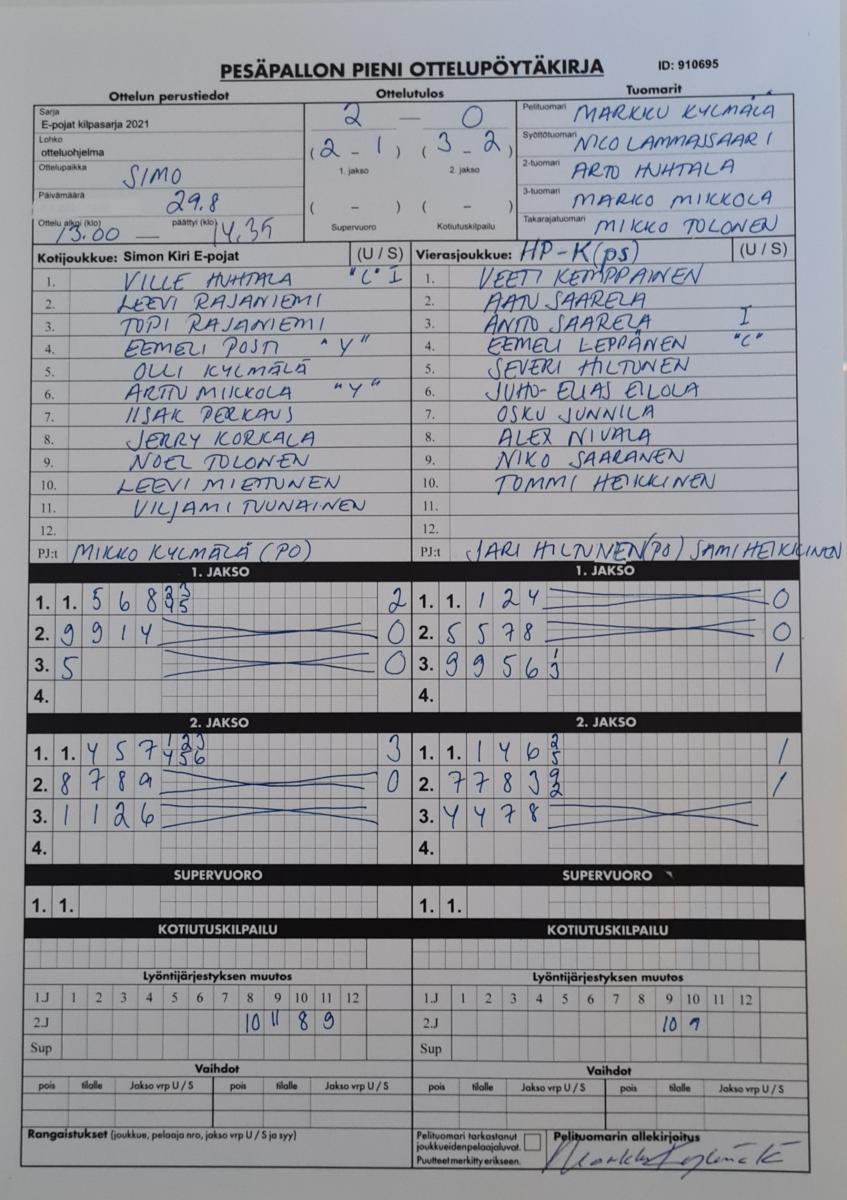 PESÄPALLON PIENI OTTELUPÖYTÄKIRJA ID: 910695
Ottelun perustiedot Ottelutulos Tuomarit
Sarja
E-pojat kilpasarja 2021
Lohko
otteluohjelma
Ottelupaikka SIMO
Päivämäärä 29.8
Ottelu alkoi (klo) 13.00 — päättyi (klo) 14.35
2 — 0
(2 - 1) (3 - 2)
1. jakso 2. jakso
( - ) ( - )
Supervuoro Kotiutuskilpailu
Pelituomari MARKKU KYLMÄLÄ
Syöttötuomari NICO LAMMASSAARI
2-tuomari ARTO HUHTALA
3-tuomari MARKO MIKKOLA
Takarajatuomari MIKKO TOLONEN
Kotijoukkue: Simon Kiri E-pojat (U / S)
1. VILLE HUHTALA "C" I
2. LEEVI RAJANIEMI
3. TOPI RAJANIEMI
4. EEMELI POSTI "Y"
5. OLLI KYLMÄLÄ
6. ARTTU MIKKOLA "Y"
7. IISAK PERKAUS
8. JERRY KORKALA
9. NOEL TOLONEN
10. LEEVI MIETTUNEN
11. VILJAMI TUUNAINEN
12.
PJ:t MIKKO KYLMÄLÄ (PO)
Vierasjoukkue: HP-K(ps) (U / S)
1. VEETI KEMPPAINEN
2. AATU SAARELA
3. ANTTO SAARELA I
4. EEMELI LEPPÄNEN "C"
5. SEVERI HILTUNEN
6. JUHO-ELIAS EILOLA
7. OSKU JUNNILA
8. ALEX NIVALA
9. NIKO SAARANEN
10. TOMMI HEIKKINEN
11.
12.
PJ:t JARI HILTUNEN (PO) SAMI HEIKKINEN
1. JAKSO
1. 1. 5 6 8 2 3 4 5 2
2. 9 9 1 4 0
3. 5 0
4.
1. JAKSO
1. 1. 1 2 4 0
2. 5 5 7 8 0
3. 9 9 5 6 1 3 1
4.
2. JAKSO
1. 1. 4 5 7 1 2 3 4 5 6 3
2. 8 7 8 9 0
3. 1 1 2 6
4.
2. JAKSO
1. 1. 1 4 6 2 5 1
2. 7 7 8 3 9 2 1
3. 4 4 7 8
4.
SUPERVUORO SUPERVUORO
1. 1. 1. 1.
KOTIUTUSKILPAILU KOTIUTUSKILPAILU
Lyöntijärjestyksen muutos
1.J 1 2 3 4 5 6 7 8 9 10 11 12
2.J 10 11 8 9
Sup
Lyöntijärjestyksen muutos
1.J 1 2 3 4 5 6 7 8 9 10 11 12
2.J 10 9
Sup
Vaihdot Vaihdot
pois tilalle Jakso vrp U / S pois tilalle Jakso vrp U / S
pois tilalle Jakso vrp U / S pois tilalle Jakso vrp U / S
Rangaistukset (joukkue, pelaaja nro, jakso vrp U / S ja syy)
Pelituomari tarkastanut
joukkueidenpelaajaluvat.
Puutteet merkitty erikseen.
Pelituomarin allekirjoitus
Markku Kylmälä